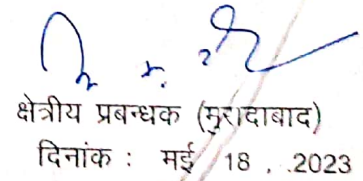 क्षेत्रीय प्रबन्धक (मुरादाबाद)
दिनांक : मई 18 , 2023